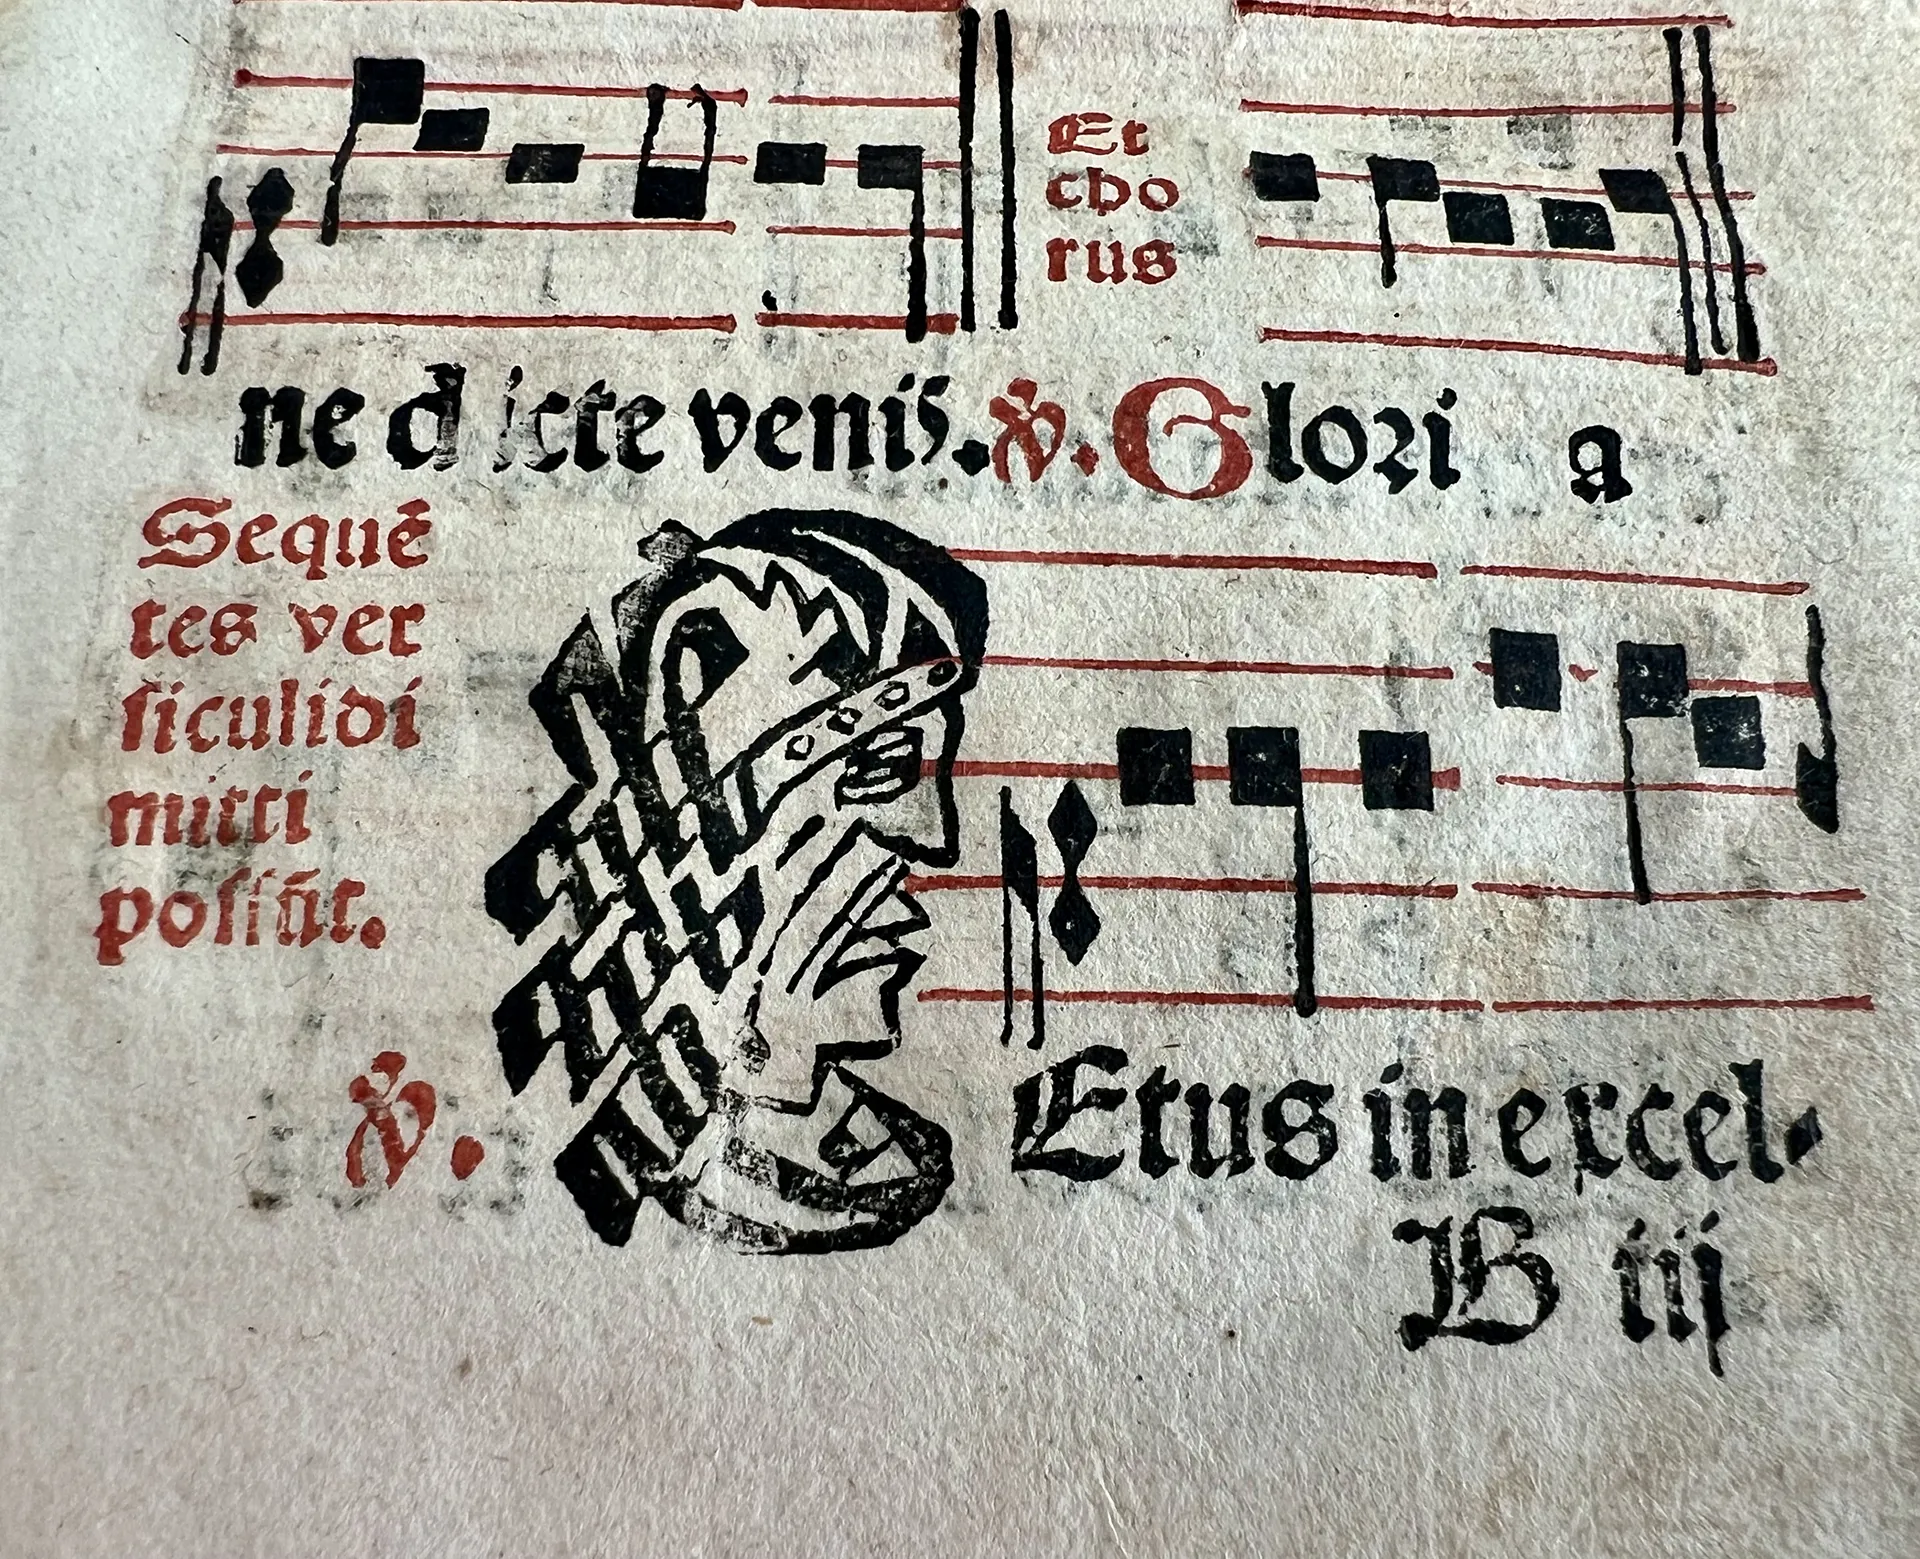 Et
cho
rus
ne dicte venis. v. Glori a
Sequē
tes ver
ſiculi di
mitti
poſſūt.
v. Etus in excel-
B iij